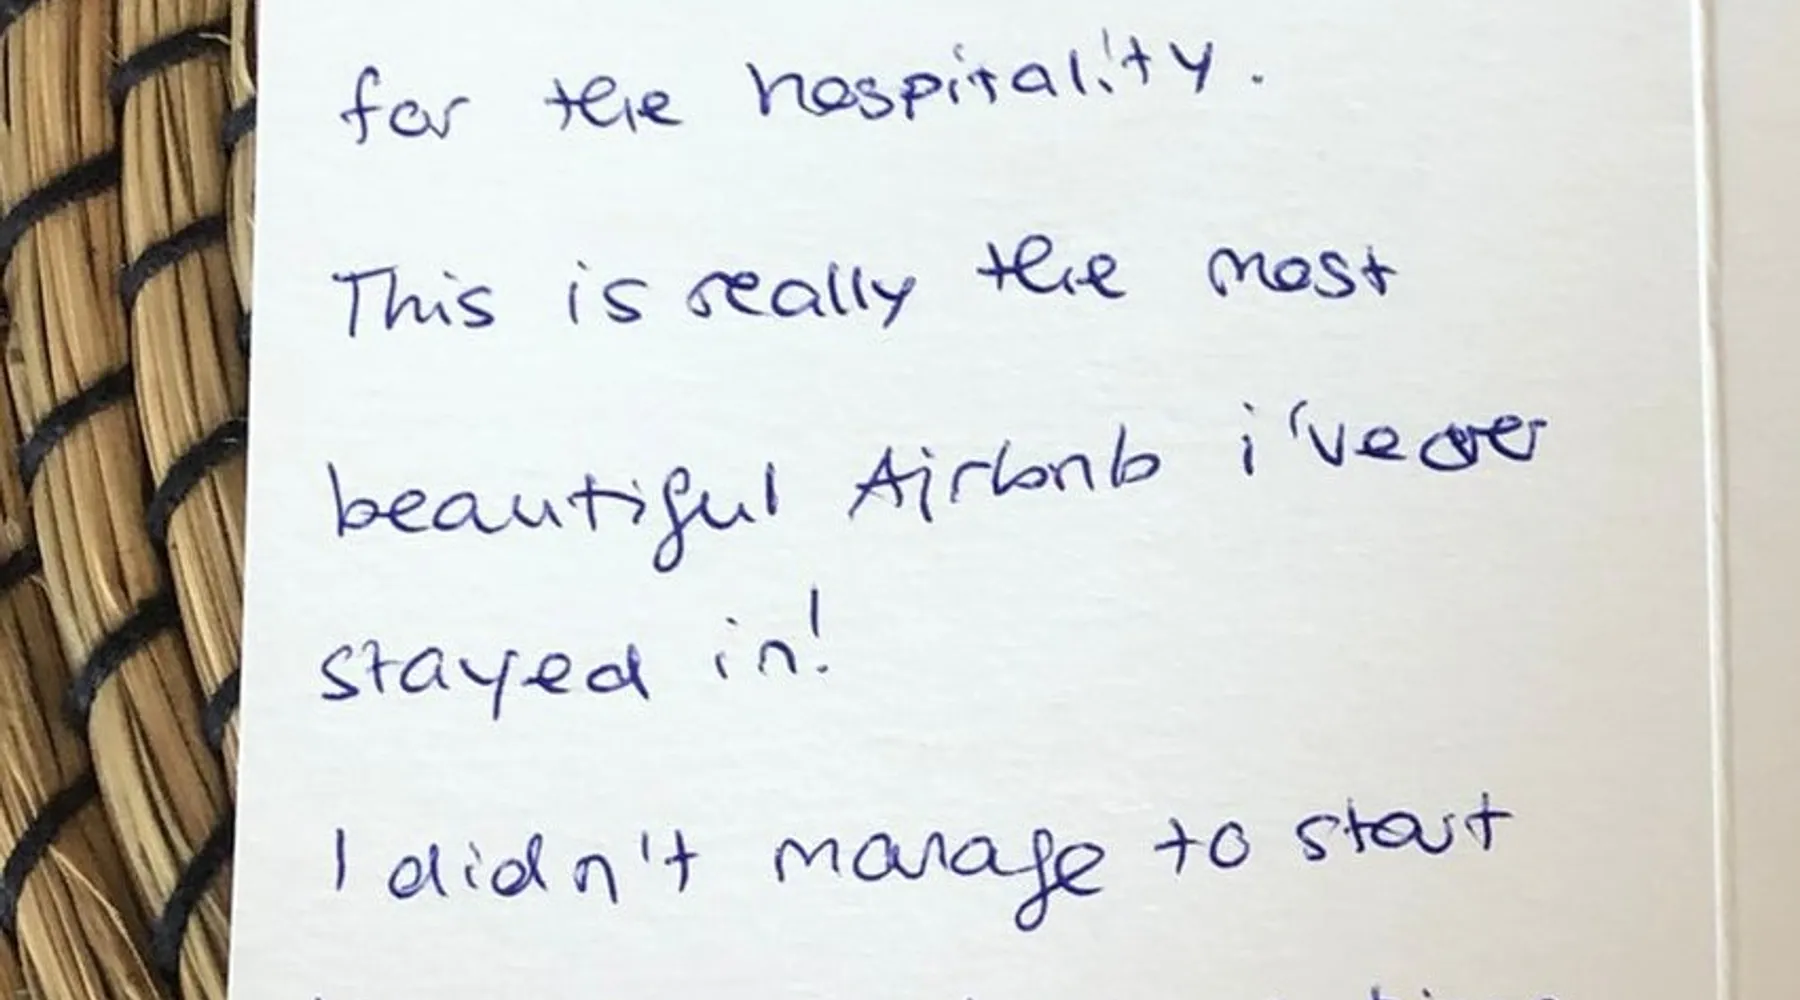 for the hospitality.
This is really the most
beautiful Airbnb i've ever
stayed in!
I didn't manage to start